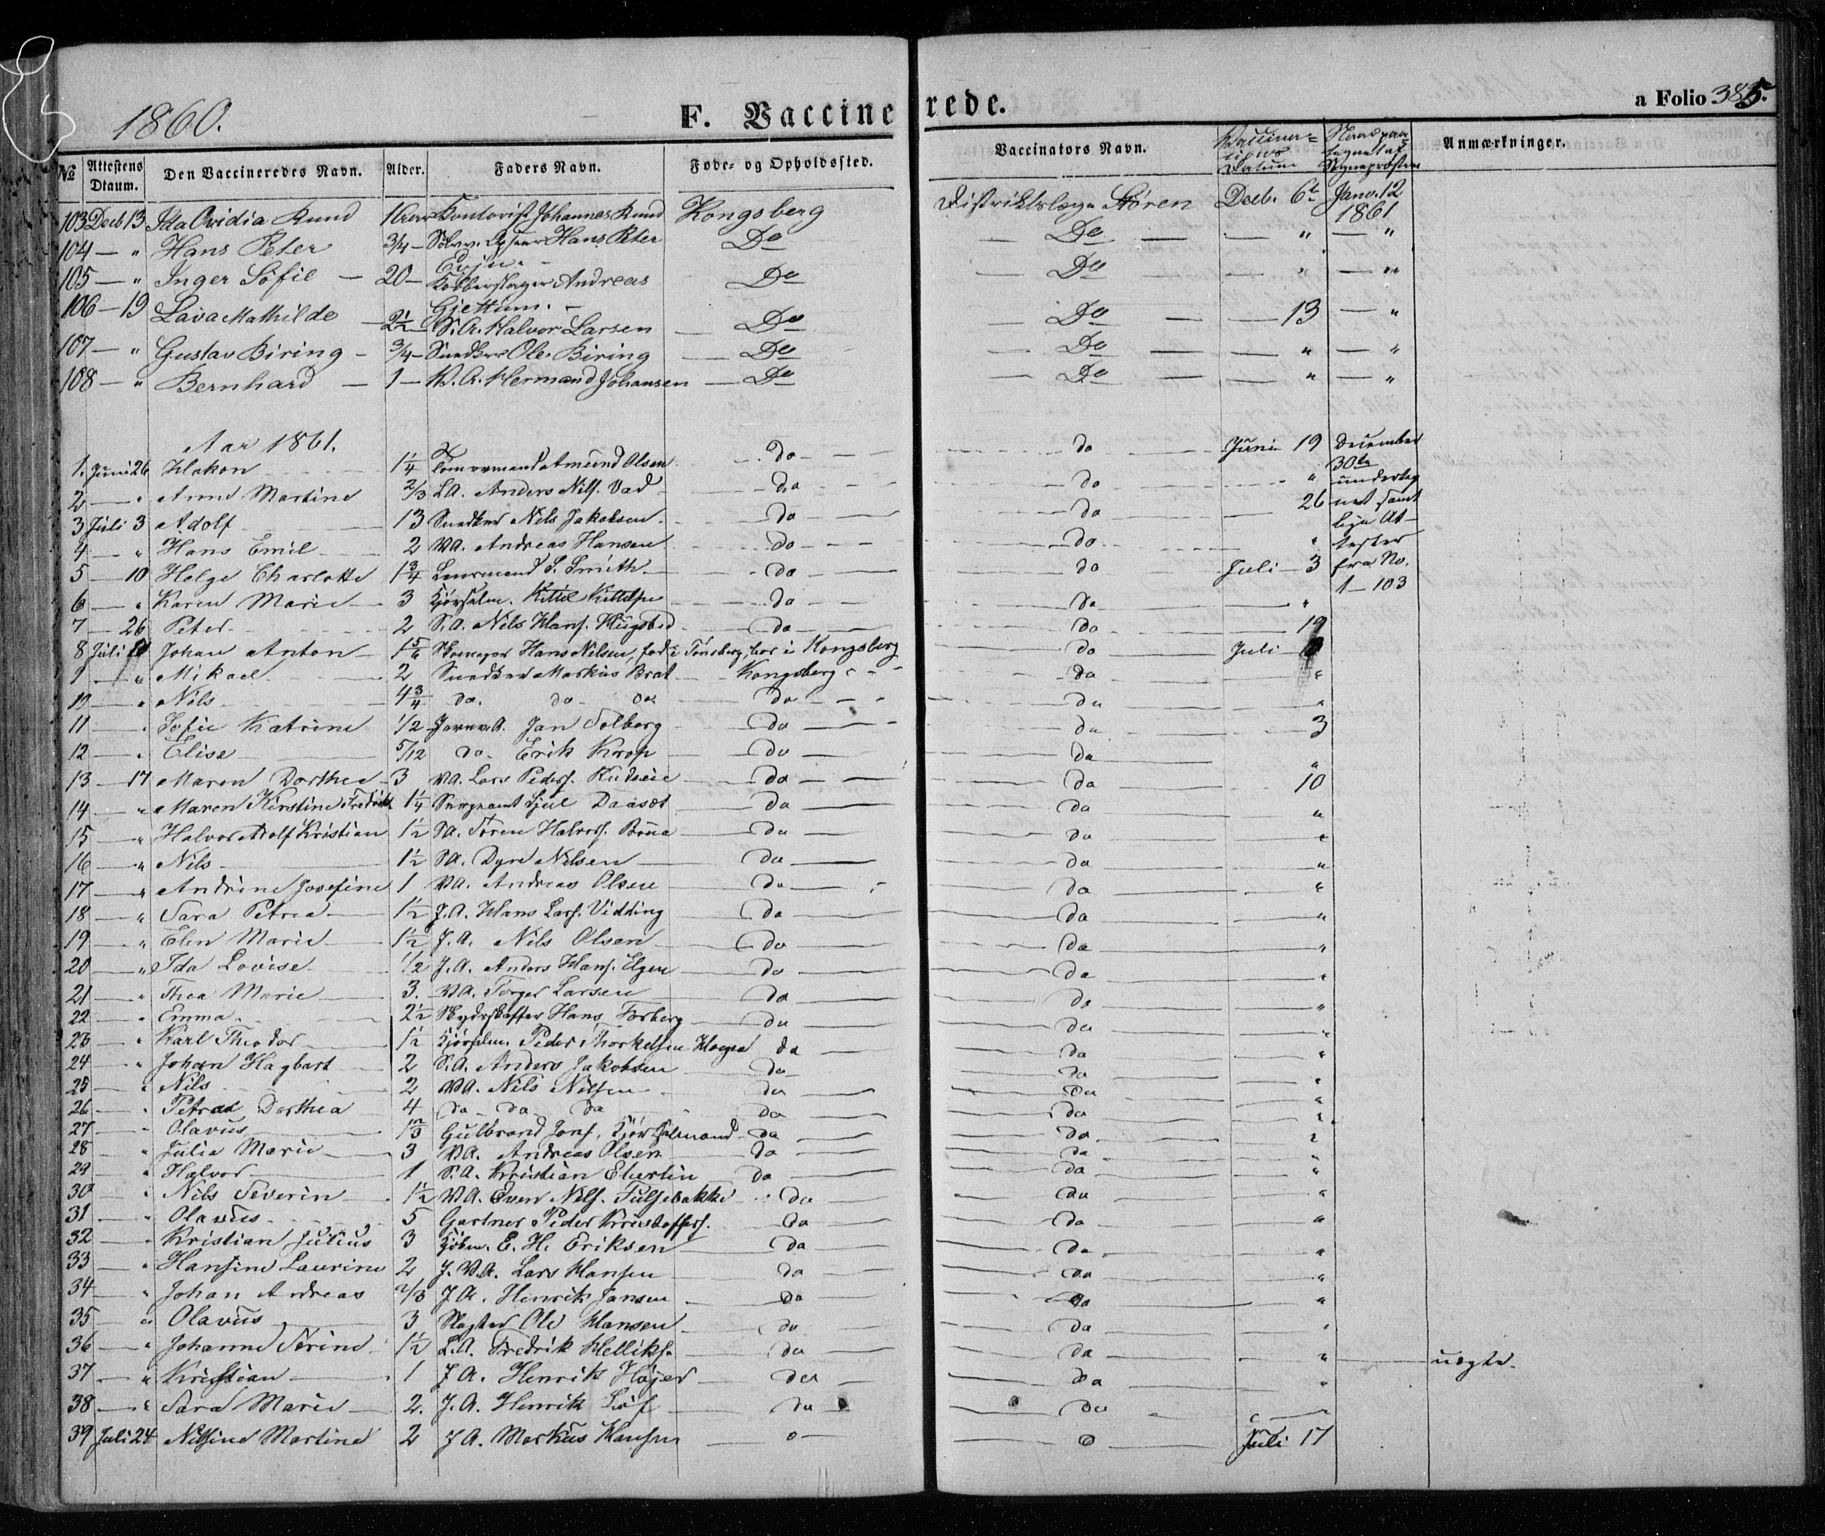 1860. F. Vaccinerede. a Folio 385.
No Attestens Dtaum. Den Vaccineredes Navn. Alder. Faders Navn. Føde- og Opholdssted. Vaccinators Navn. Datum Anmærkninger.
103 Decb 13 Ida Ovidia Rund Kontorist Johannes Rund Kongsberg Distriktslæge Støren Decb. 6 Janv. 12 1861
104 — " Hans Peter 3/4 — Hans Peter Do — Do — — " — "
105 — " Inger Sofie — 20 — Kobberslager Andreas Do — Do — — " — "
106 — 19 Lava Mathilde — 2 1/2 — Gjettum. — S.A. Halvor Larsen — Do — Do — — 13 — "
107 — " Gustav Biring — 3/4 — Snedker Ole Biring — Do — Do — — " — "
108 — " Bernhard — 1 — V.A. Hermand Johansen — Do — Do — — " — "
Aar 1861.
1. Juni 26 Hakon 1 1/4 Tømmermand Amund Olsen Do do Juni 19 December 30te
2 — " Anne Martine 2/3 L.A. Anders Nils. Vad do do " undertegnet samt
3 Juli 3 Adolf 13 Snedker Nils Jakobsen do do 26
4 — " Hans Emil 2 V.A. Andreas Hansen do do " Attester
5 — 10 Helge Charlotte 1 3/4 Lensmand S. Smith do do Juli 3 fra No.
6 — " Karen Marie 3 Kjørselm. Kittel Kittelsen do do " 1 — 103
7 — 26 Peter 2 S.A. Nils Hans. do do 19
8 Juli Johan Anton 1 5/6 Skomager Hans Nilsen, fød i Tønsberg, bor i Kongsberg do Juli
9 — " Mikael 2 Snedker Markus Brat Kongsberg do "
10 " Nils 4 3/4 do. do do do do "
11 " Sofie Katrine 1/2 Jernv.A. Jan Solberg do do 3
12 " Elise 5/12 do Erik Krop do do "
13 — 17 Maren Dorthea 3 V.A. Lars Peders. do do 10
14 " Maren Kirstine Fredrikke 1 1/4 Sergeant do do "
15 — " Halvor Adolf Kristian 1 1/2 S.A. Søren Halvors. do do "
16 — " Nils 1 1/2 S.A. Dyre Nilsen do do "
17 — " Andrine Josefine 1 V.A. Andreas Olsen do do "
18 — " Sara Petrea 1 1/2 J.A. Hans Lars. Vidding do do "
19 — " Elen Marie 1 1/2 J.A. Nils Olsen do do "
20 — " Ida Lovise 1/2 J.A. Anders Hans. Elgen do do "
21 — " Thea Marie 3. V.A. Torger Larsen do do "
22 — " Emma 2 1/2 Skydsskaffer Hans Torberg do do "
23 — " Karl Theodor 1 1/2 Kjørselm. Peder Thorkelsen do do "
24 — " Johan Hagbart 2 S.A. Anders Jakobsen do do "
25 — " Nils 2 V.A. Nils Nilsen do do "
26 — " Petrea Dorthea 4 do do do do do "
27 — " Olavus 1 2/3 Gulbrand Jons. Kjørselmand do do "
28 — " Julia Marie 3 V.A. Andreas Olsen do do "
29 — " Halvor 1 S.A. Kristian Eberlin do do "
30 — " Nils Severin 1 1/2 V.A. Even Nils. Fulsebakke do do "
31 — " Olavus 5 Gartner Peder Kristoffers. do do "
32 — " Kristian Julius 3 Kjøbm. E. H. Eriksen do do "
33 — " Hansine Laurine 2 J.V.A. Lars Hansen do do "
34 — " Johan Andreas 2/3 J.A. Henrik Jansen do do "
35 — " Olavus 3 Slagter Ole Hansen do do "
36 — " Johanne Serine 1 1/2 L.A. Fredrik Helliks. do do " uægte.
37 — " Kristian 1 J.A. Henrik Højer do do "
38 — " Sara Marie 2. J.A. Henrik Løf do do "
39 Juli 24 Nilsine Martine 2 J.A. Markus Hansen o o Juli 17